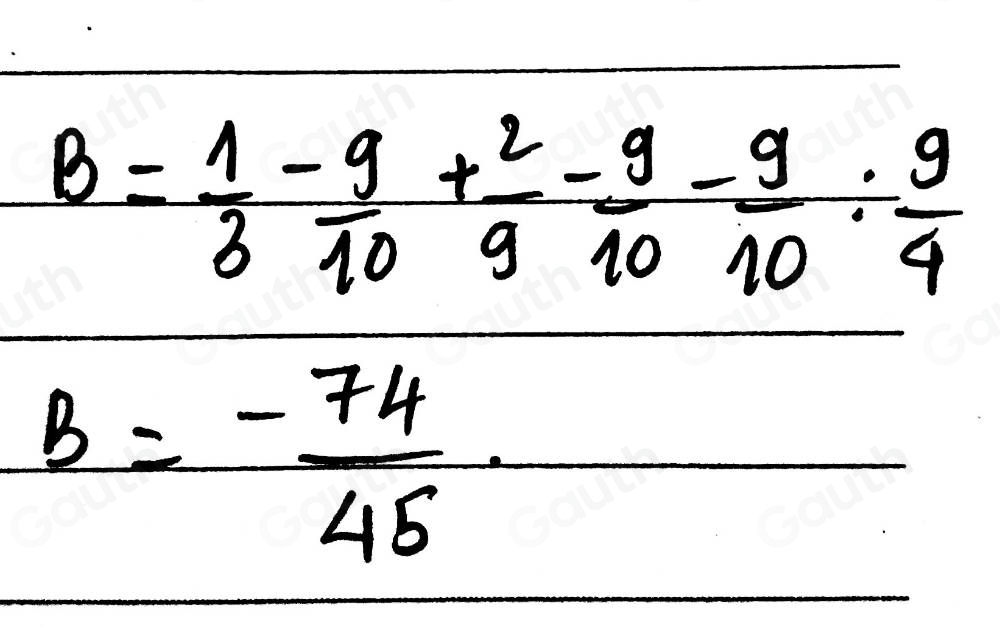 B = 1/3 - 9/10 + 2/9 - 9/10 - 9/10 : 9/4
B = -74/45.